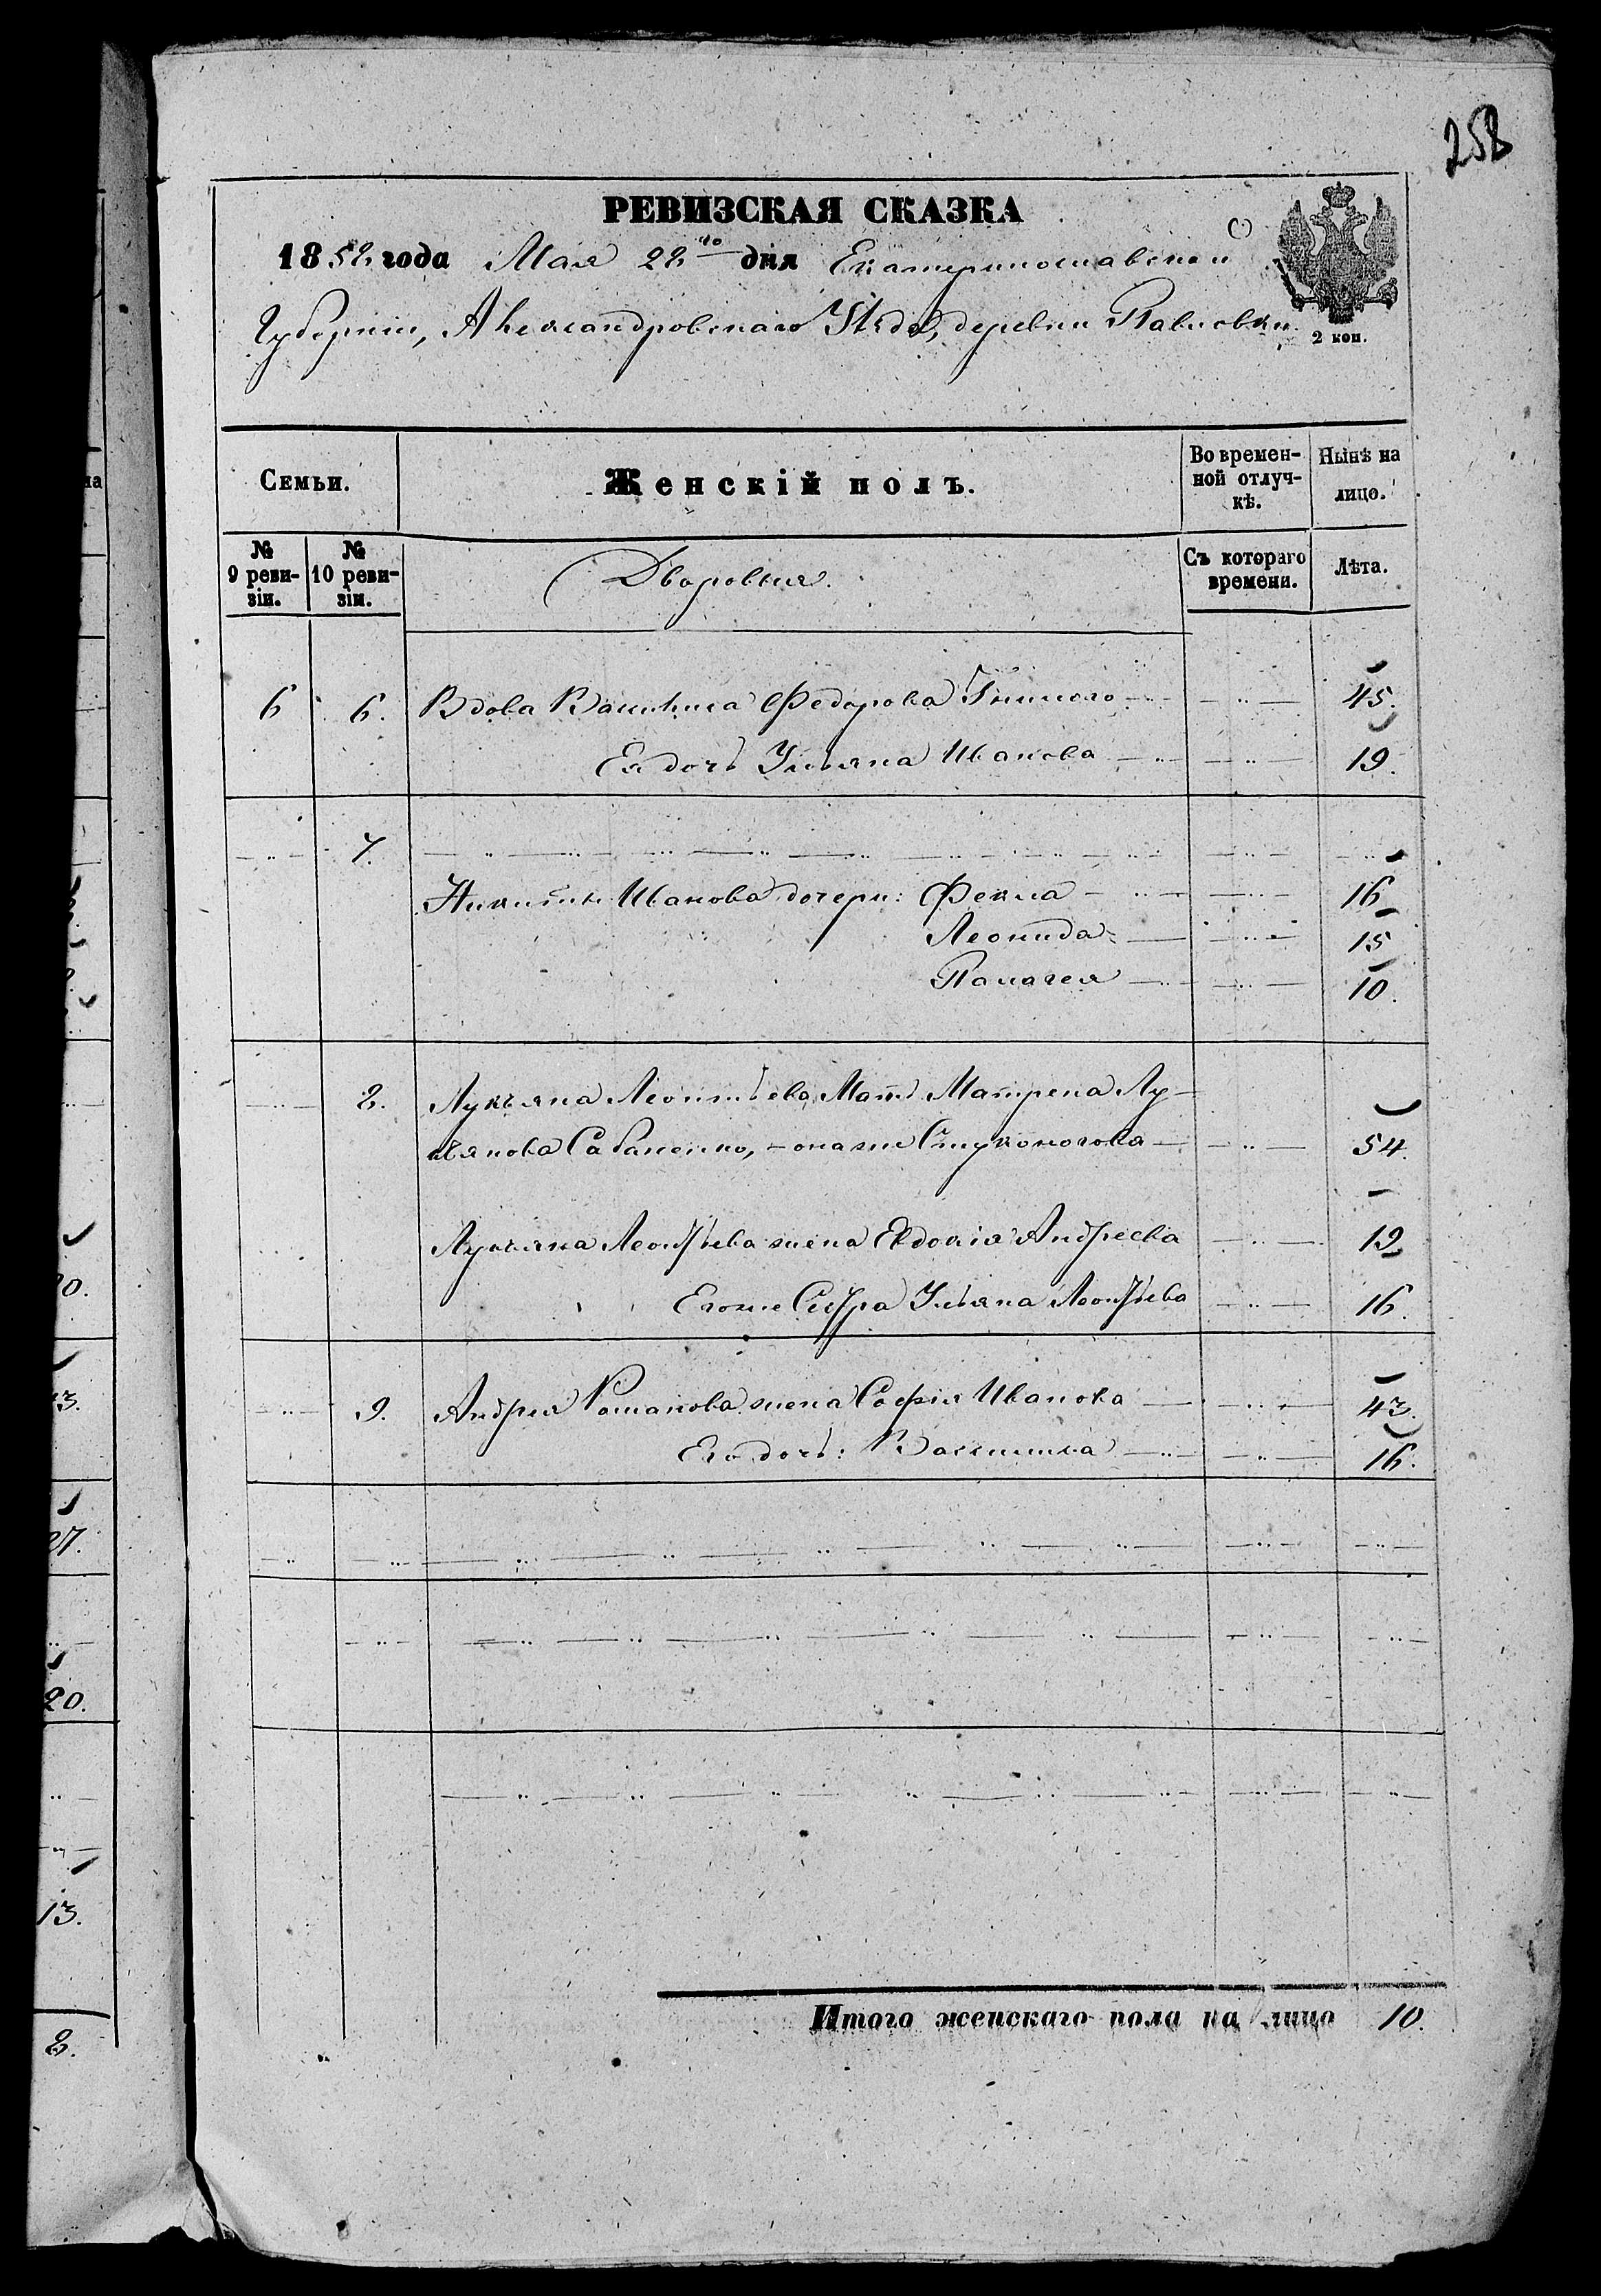 258
РЕВИЗСКАЯ СКАЗКА
1858 года Мая 28го дня Екатеринославской
Губерніи, Александровскаго Уѣзда, деревни Павловки.
2 коп.
Семьи. Женскій полъ. Во времен-ной отлуч-кѣ. Нынѣ на лицо.
№ 9 реви-зіи. № 10 реви-зіи. Дворовыя. Съ котораго времени. Лѣта.
6 6. Вдова Василиса Федорова 45.
Ея дочь Ульяна Иванова 19.
7.
Никиты Иванова дочери: Фекла 16
Леонида 15
Палагея 10.
8. Лукьяна Леонтьева Мать Матрена Лу-
кьянова Сабаненко, она же Стуконогова 54.
Лукьяна Леонтьева жена Евдокія Андреева 19
Его же Сестра Ульяна Леонтьева 16.
9. Андрея Романова жена Софія Иванова 43.
Его дочь: Василиса 16.
Итого женскаго пола на лицо 10.
на
20.
13.
27.
20.
13.
8.